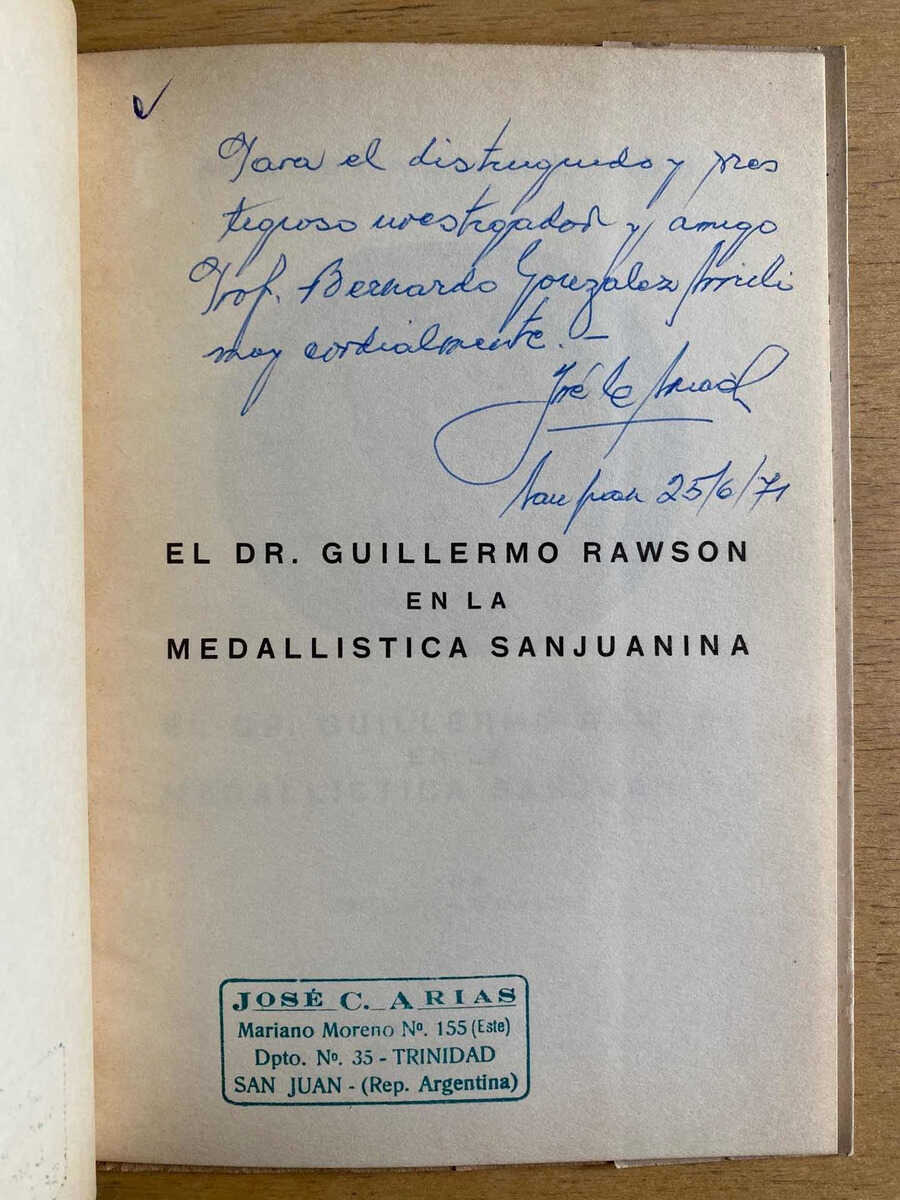 Para el distinguido y pres
tigioso investigador y amigo
Prof. Bernardo Gonzalez Arrili
muy cordialmente.-
José C. Arias
San Juan 25/6/71
EL DR. GUILLERMO RAWSON
EN LA
MEDALLISTICA SANJUANINA
JOSÉ C. ARIAS
Mariano Moreno Nº. 155 (Este)
Dpto. Nº. 35 - TRINIDAD
SAN JUAN - (Rep. Argentina)